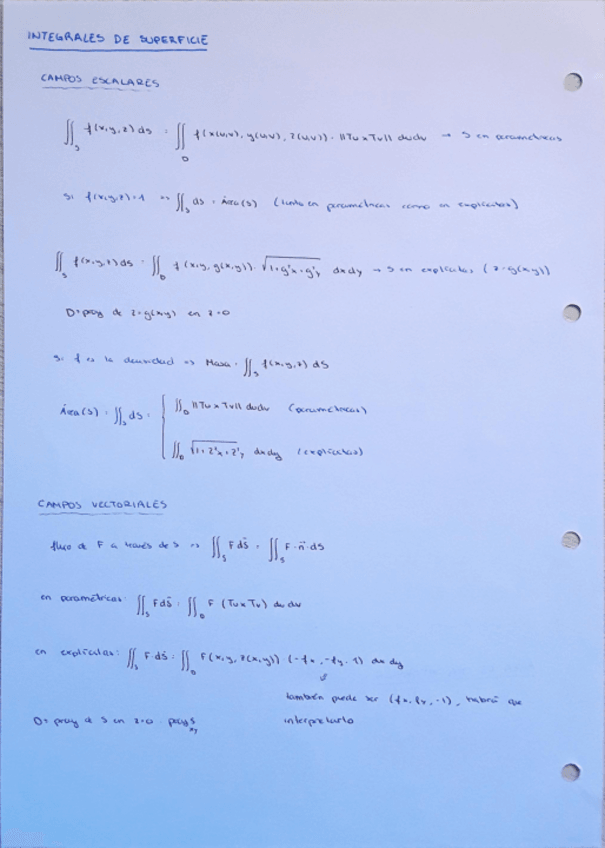 INTEGRALES DE SUPERFICIE
CAMPOS ESCALARES
∬_S f(x,y,z) ds = ∬_D f(x(u,v), y(u,v), z(u,v)) · ||Tu x Tv|| dudv → S en paramétricas
Si f(x,y,z)=1 => ∬_S ds = Área(S) (tanto en paramétricas como en explícitas)
∬_S f(x,y,z) ds = ∬_D f(x,y,g(x,y)) · √(1+g'x+g'y) dxdy → S en explícitas (z=g(x,y))
D=proy de z=g(x,y) en z=0
Si f es la densidad => Masa = ∬_S f(x,y,z) dS
Área(S) = ∬_S ds = { ∬_D ||Tu x Tv|| dudv (paramétricas)
∬_D √(1+z'x+z'y) dxdy (explícitas)
CAMPOS VECTORIALES
flujo de F a través de S => ∬_S F ds = ∬_S F · n · dS
en paramétricas: ∬_S F ds = ∬_D F (Tu x Tv) du dv
en explícitas: ∬_S F · ds = ∬_D F(x,y,z(x,y)) (-fx, -fy, 1) dx dy
↓
también puede ser (fx, fy, -1), habrá que
interpretarlo
D= proy de S en z=0 proy S xy